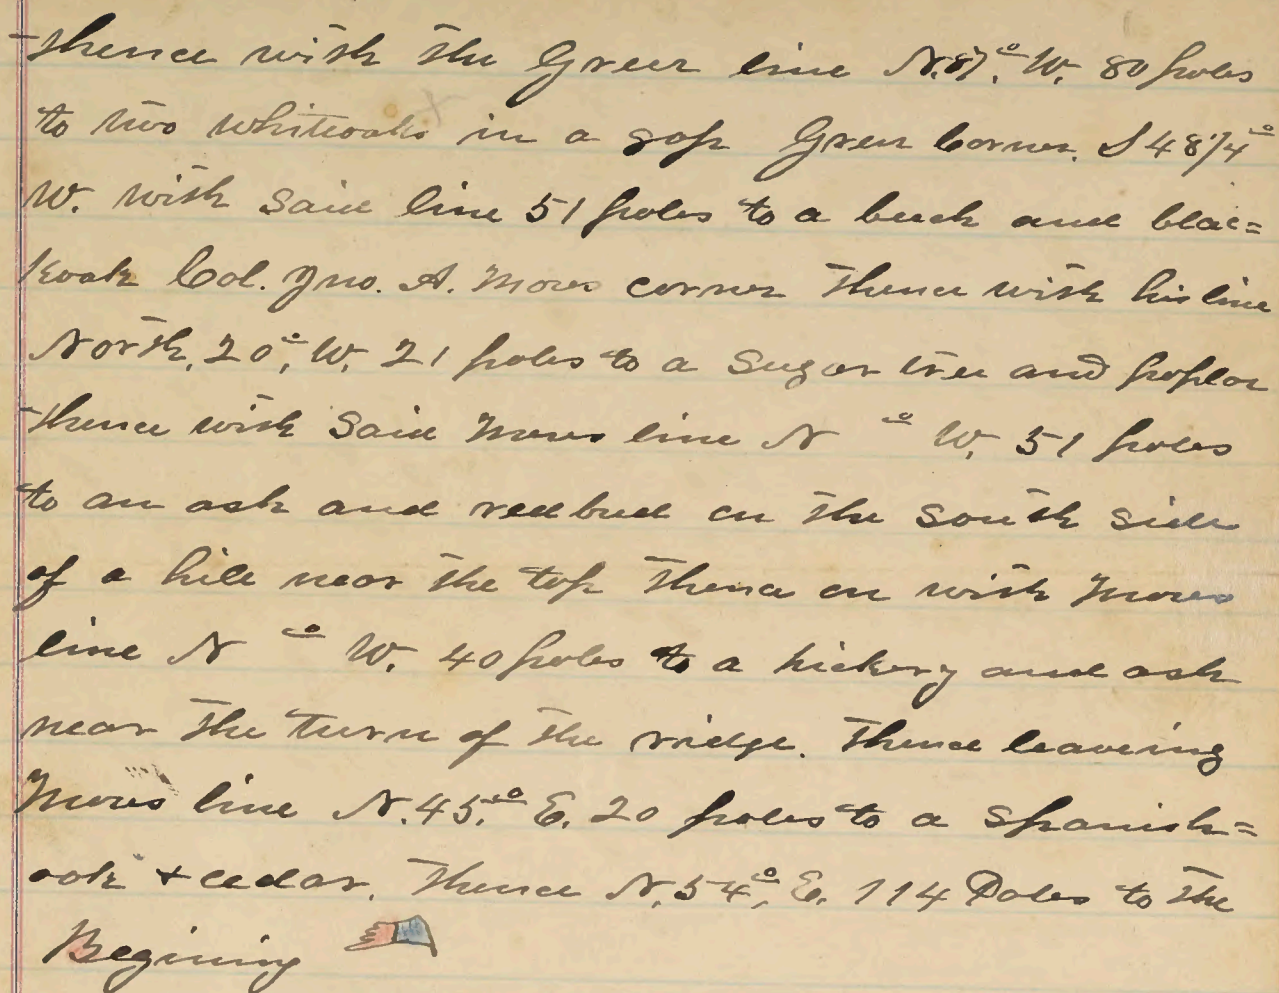 thence with the Greer line N.87.° W. 80 poles
to two whiteoaks in a gap Greer Corner. S 48 1/4°
W. with said line 51 poles to a buck and blac=
koak Col. Jno. A. Mores corner Thence with his line
North, 20°, W, 21 poles to a Sugar tree and poplar
thence with said Mores line N ° W, 51 poles
to an ash and redbud on the South side
of a hill near the top Thence on with Mores
line N ° W. 40 poles to a hickory and ash
near the turn of the ridge. Thence leaving
Mores line N.45.° E. 20 poles to a Spanish=
oak + cedar. Thence N. 54°, E. 114 Poles to the
Begining